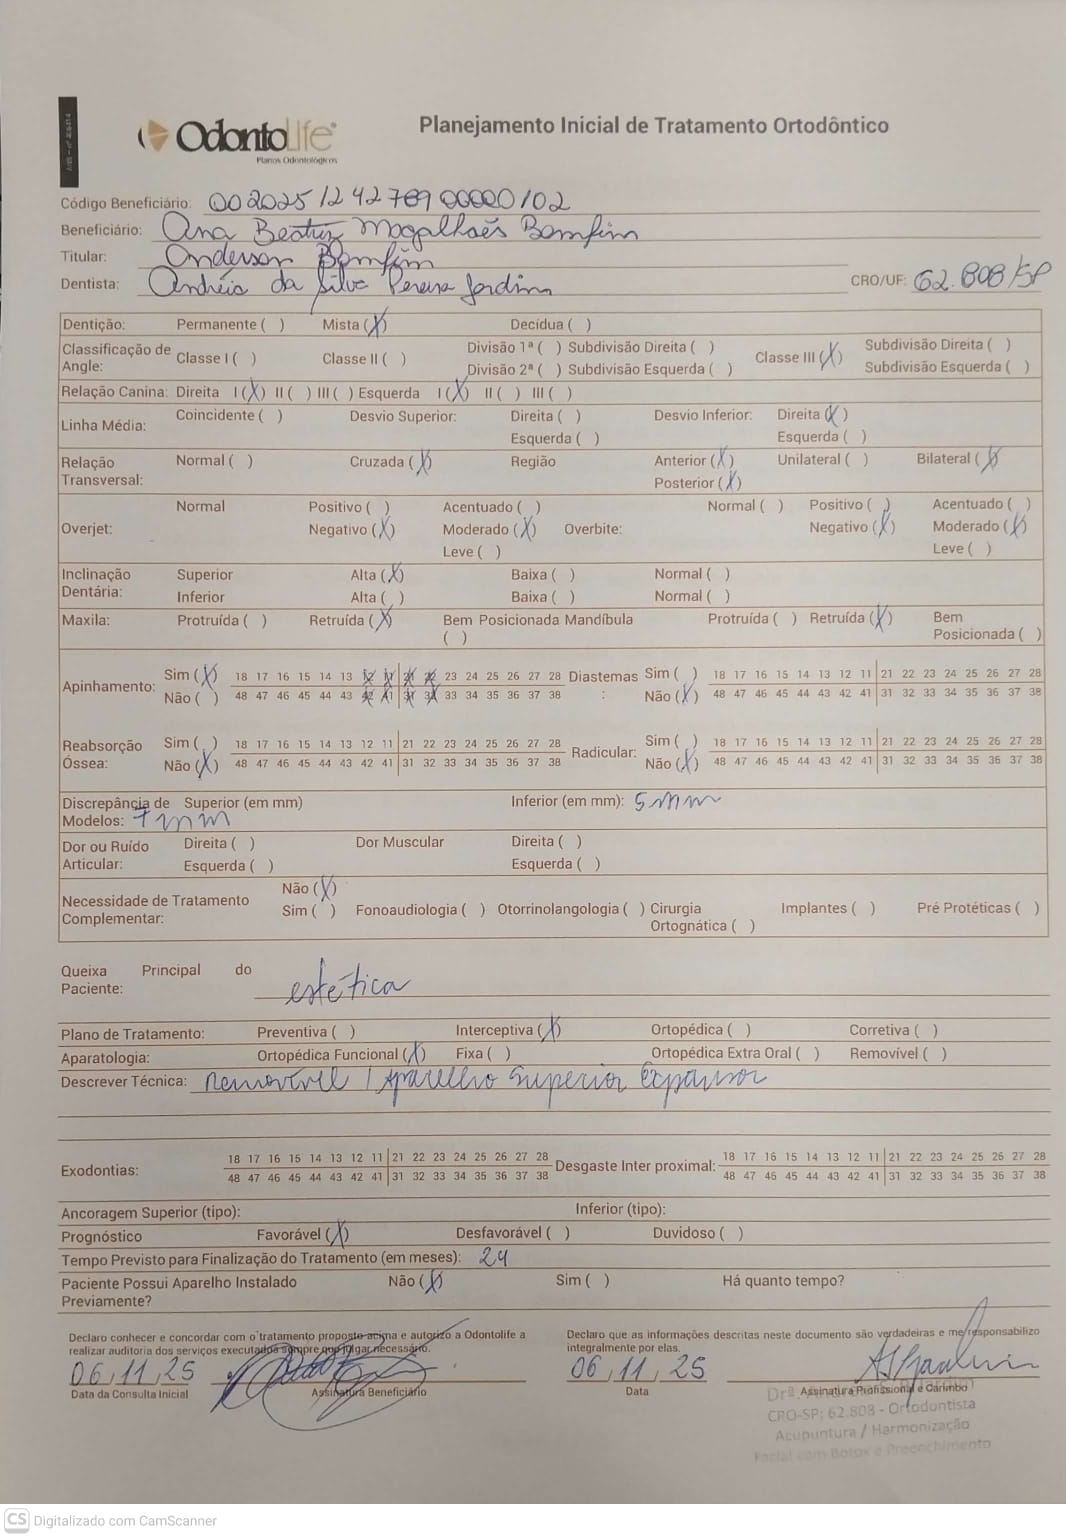 ANS - nº 406414
OdontoLife
Planos Odontológicos
Planejamento Inicial de Tratamento Ortodôntico
Código Beneficiário: 002025/242789 00000/02
Beneficiário: Ana Beatriz Magalhães Bomfim
Titular: Anderson Bomfim
Dentista: Andréia da Silva Pereira Jardim CRO/UF: 62.808/SP
Dentição: Permanente ( ) Mista (X) Decídua ( )
Classificação de Angle: Classe I ( ) Classe II ( ) Divisão 1ª ( ) Subdivisão Direita ( ) Divisão 2ª ( ) Subdivisão Esquerda ( ) Classe III (X) Subdivisão Direita ( ) Subdivisão Esquerda ( )
Relação Canina: Direita I (X) II ( ) III ( ) Esquerda I (X) II ( ) III ( )
Linha Média: Coincidente ( ) Desvio Superior: Direita ( ) Esquerda ( ) Desvio Inferior: Direita (X) Esquerda ( )
Relação Transversal: Normal ( ) Cruzada (X) Região Anterior (X) Posterior (X) Unilateral ( ) Bilateral (X)
Overjet: Normal Positivo ( ) Negativo (X) Acentuado ( ) Moderado (X) Leve ( ) Overbite: Normal ( ) Positivo ( ) Negativo (X) Acentuado ( ) Moderado (X) Leve ( )
Inclinação Dentária: Superior Alta (X) Baixa ( ) Normal ( )
Inferior Alta ( ) Baixa ( ) Normal ( )
Maxila: Protruída ( ) Retruída (X) Bem Posicionada ( ) Mandíbula Protruída ( ) Retruída (X) Bem Posicionada ( )
Apinhamento: Sim (X) 18 17 16 15 14 13 12 11 21 22 23 24 25 26 27 28 Diastemas : Sim ( ) 18 17 16 15 14 13 12 11 21 22 23 24 25 26 27 28
Não ( ) 48 47 46 45 44 43 42 41 31 32 33 34 35 36 37 38 Não (X) 48 47 46 45 44 43 42 41 31 32 33 34 35 36 37 38
Reabsorção Óssea: Sim ( ) 18 17 16 15 14 13 12 11 21 22 23 24 25 26 27 28 Radicular: Sim ( ) 18 17 16 15 14 13 12 11 21 22 23 24 25 26 27 28
Não (X) 48 47 46 45 44 43 42 41 31 32 33 34 35 36 37 38 Não (X) 48 47 46 45 44 43 42 41 31 32 33 34 35 36 37 38
Discrepância de Modelos: Superior (em mm) 7 mm Inferior (em mm): 5 mm
Dor ou Ruído Articular: Direita ( ) Esquerda ( ) Dor Muscular Direita ( ) Esquerda ( )
Necessidade de Tratamento Complementar: Não (X) Sim ( ) Fonoaudiologia ( ) Otorrinolangologia ( ) Cirurgia Ortognática ( ) Implantes ( ) Pré Protéticas ( )
Queixa Principal do Paciente: estética
Plano de Tratamento: Preventiva ( ) Interceptiva (X) Ortopédica ( ) Corretiva ( )
Aparatologia: Ortopédica Funcional (X) Fixa ( ) Ortopédica Extra Oral ( ) Removível ( )
Descrever Técnica: Removível / Aparelho Superior Expansor
Exodontias: 18 17 16 15 14 13 12 11 21 22 23 24 25 26 27 28 Desgaste Inter proximal: 18 17 16 15 14 13 12 11 21 22 23 24 25 26 27 28
48 47 46 45 44 43 42 41 31 32 33 34 35 36 37 38 48 47 46 45 44 43 42 41 31 32 33 34 35 36 37 38
Ancoragem Superior (tipo): Inferior (tipo):
Prognóstico Favorável (X) Desfavorável ( ) Duvidoso ( )
Tempo Previsto para Finalização do Tratamento (em meses): 24
Paciente Possui Aparelho Instalado Previamente? Não (X) Sim ( ) Há quanto tempo?
Declaro conhecer e concordar com o tratamento proposto acima e autorizo a Odontolife a
realizar auditoria dos serviços executados sempre que julgar necessário.
06,11,25
Data da Consulta Inicial Assinatura Beneficiário
Declaro que as informações descritas neste documento são verdadeiras e me responsabilizo
integralmente por elas.
06,11,25
Data Assinatura Profissional e Carimbo
CRO-SP: 62.808 - Ortodontista
Acupuntura / Harmonização
Facial com Botox e Preenchimento
CS Digitalizado com CamScanner